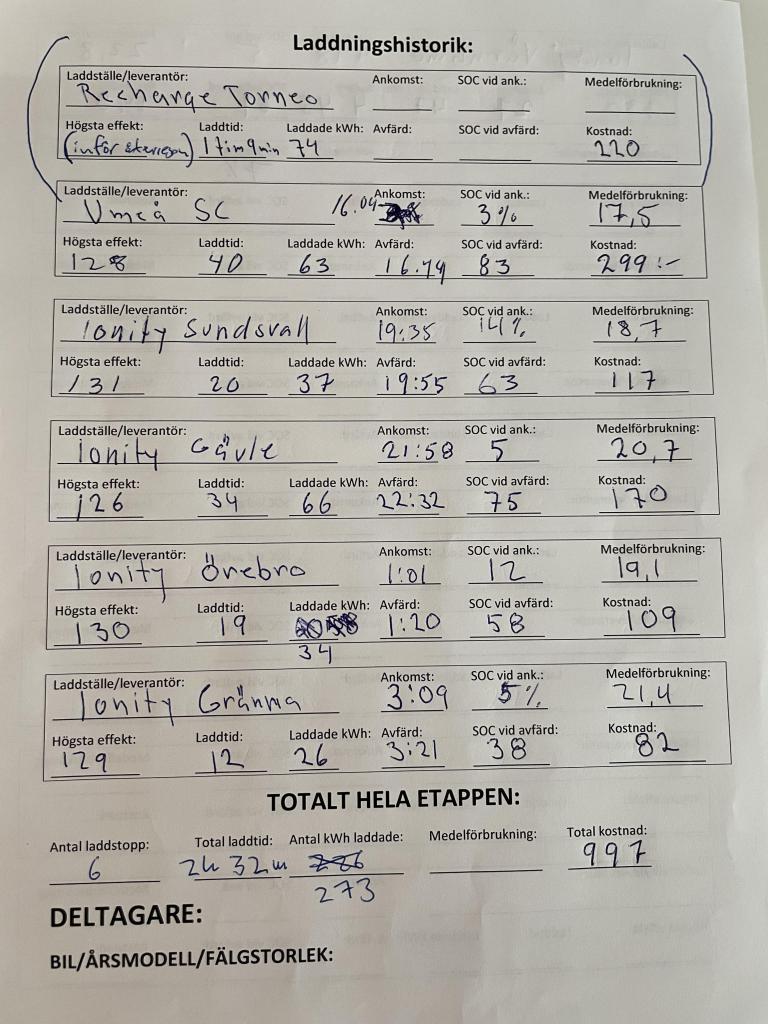 Laddningshistorik:
Laddställe/leverantör: Ankomst: SOC vid ank.: Medelförbrukning:
Recharge Torneo
Högsta effekt: Laddtid: Laddade kWh: Avfärd: SOC vid avfärd: Kostnad:
(inför återresan) 1 tim 9 min 74 220
Laddställe/leverantör: Ankomst: SOC vid ank.: Medelförbrukning:
Umeå SC 16.04 3% 17,5
Högsta effekt: Laddtid: Laddade kWh: Avfärd: SOC vid avfärd: Kostnad:
128 40 63 16.44 83 299:-
Laddställe/leverantör: Ankomst: SOC vid ank.: Medelförbrukning:
Ionity Sundsvall 19:35 14% 18,7
Högsta effekt: Laddtid: Laddade kWh: Avfärd: SOC vid avfärd: Kostnad:
131 20 37 19:55 63 117
Laddställe/leverantör: Ankomst: SOC vid ank.: Medelförbrukning:
Ionity Gävle 21:58 5 20,7
Högsta effekt: Laddtid: Laddade kWh: Avfärd: SOC vid avfärd: Kostnad:
126 34 66 22:32 75 170
Laddställe/leverantör: Ankomst: SOC vid ank.: Medelförbrukning:
Ionity Örebro 1:01 12 19,1
Högsta effekt: Laddtid: Laddade kWh: Avfärd: SOC vid avfärd: Kostnad:
130 19 1:20 58 109
34
Laddställe/leverantör: Ankomst: SOC vid ank.: Medelförbrukning:
Ionity Gränna 3:09 5% 21,4
Högsta effekt: Laddtid: Laddade kWh: Avfärd: SOC vid avfärd: Kostnad:
129 12 26 3:21 38 82
TOTALT HELA ETAPPEN:
Antal laddstopp: Total laddtid: Antal kWh laddade: Medelförbrukning: Total kostnad:
6 2h 32m 226 997
273
DELTAGARE:
BIL/ÅRSMODELL/FÄLGSTORLEK: